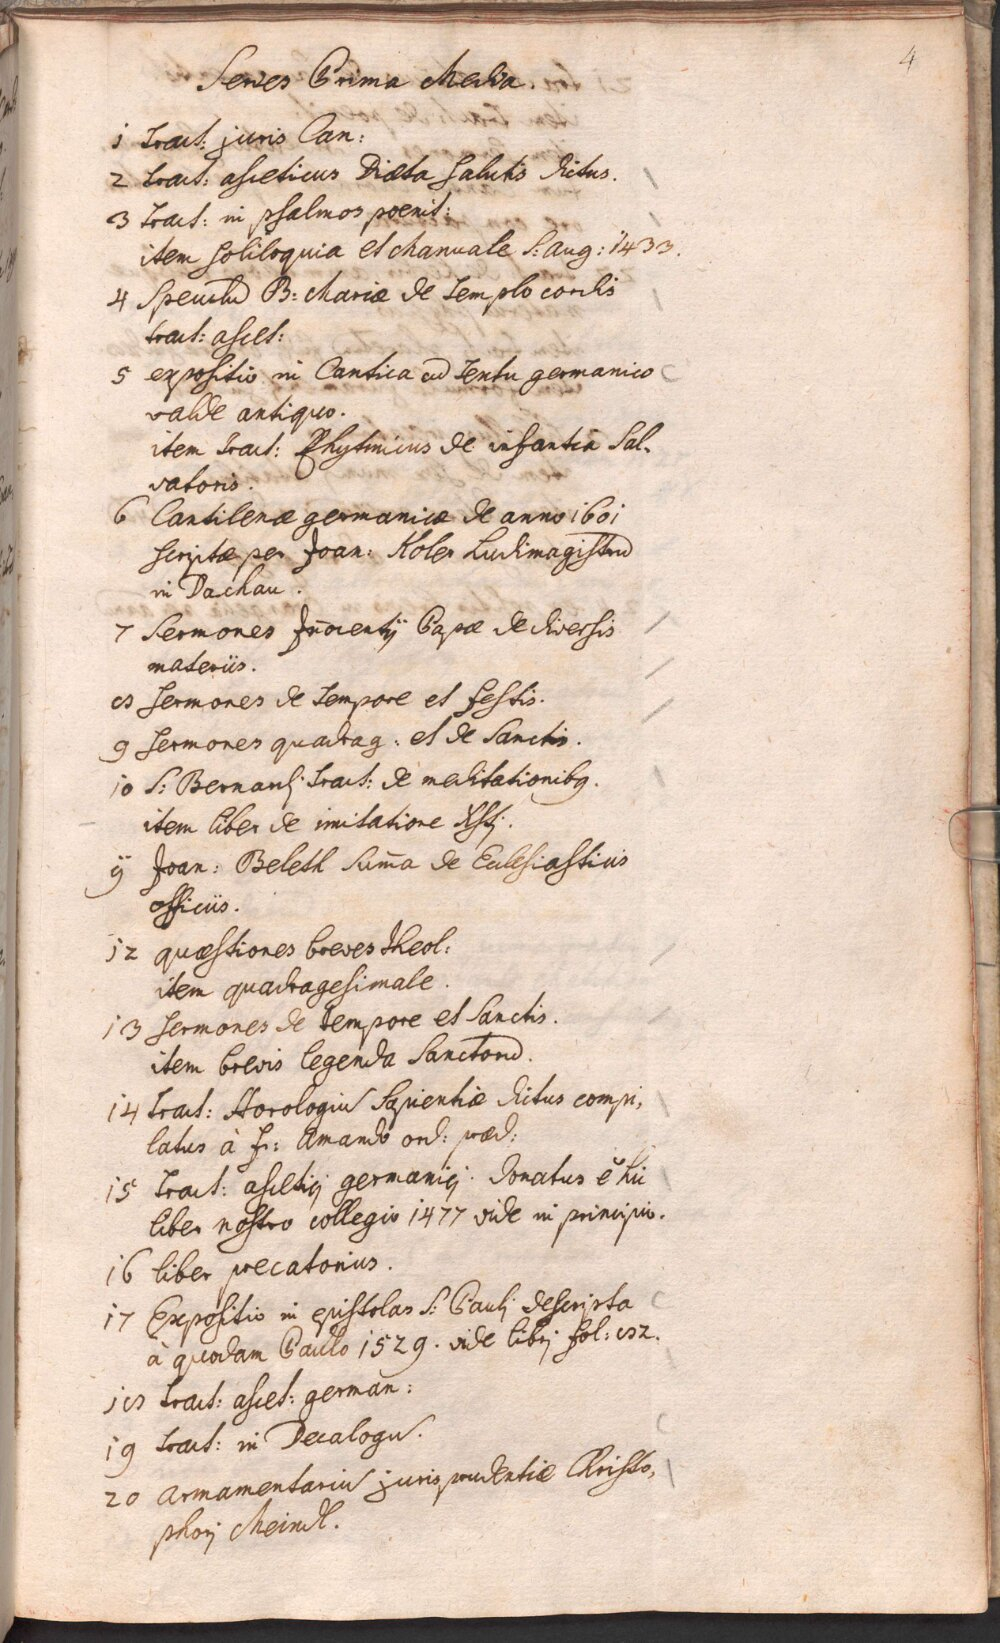 4
Series Prima Media.
1 tract: juris Can:
2 tract: asceticus Diæta Salutis dictus.
3 tract: in psalmos poenit:
item soliloquia et Manuale S: Aug: 1433.
4 Speculũ B: Mariæ de templo cordis
tract: ascet:
5 expositio in Cantica cũ textu germanico
valde antiquo.
item tract: Rhytmicus de infantia Sal-
vatoris.
6 Cantilenæ germanicæ de anno 1601
scriptæ per Joan: Koler Ludimagistrũ
in Dachau.
7 Sermones Iñocentij Papæ de diversis
materiis.
8 sermones de tempore et festis.
9 sermones quadrag: et de Sanctis.
10 S: Bernardj tract: de meditationibq.
item liber de imitatione Xstj.
11 Joan: Beleth Sum̃a de Ecclesiasticis
officiis.
12 quæstiones breves theol:
item quadragesimale.
13 sermones de tempore et Sanctis.
item brevis legenda Sanctorũ.
14 tract: Horologiũ Sapientiæ dictus compi,
latus à fr: Amando ord: præd:
15 tract: asceticj germanicj. donatus ẽ hic
liber nostro collegio 1477 vide in principio.
16 liber precatorius.
17 Expositio in epistolas S: Paulj descripta
à quodam Paulo 1529. vide librj fol: 82.
18 tract: ascet: german:
19 tract: in Decalogũ.
20 Armamentariũ jurisprudentiæ Christo,
phorj Meindl.